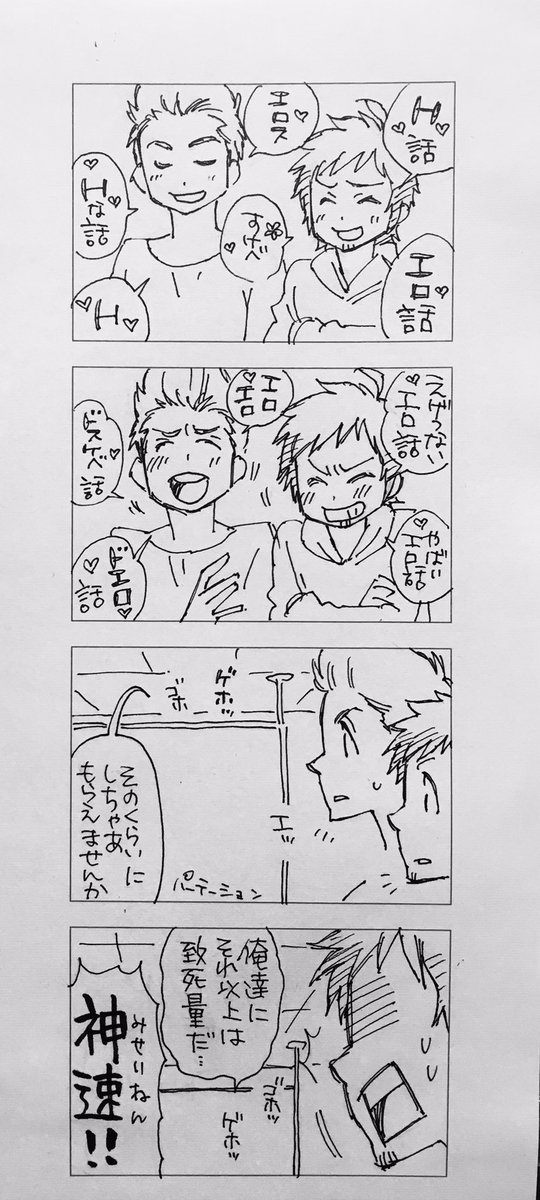 H♡
話♡
エロス♡
エロ♡
話
すけべ♡
♡Hな話♡
♡H♡
えげつない
エロ話
エロ
エロ♡
♡やばい
エロ話
ドスケベ♡
話
ドエロ♡
♡話
ゲホッ
ゴホ
エッ
パーテーション
そのくらいに
しちゃあ
もらえませんか
俺達に
それ以上は
致死量だ…
ゴホッ
ゲホッ
みせいねん
神速!!